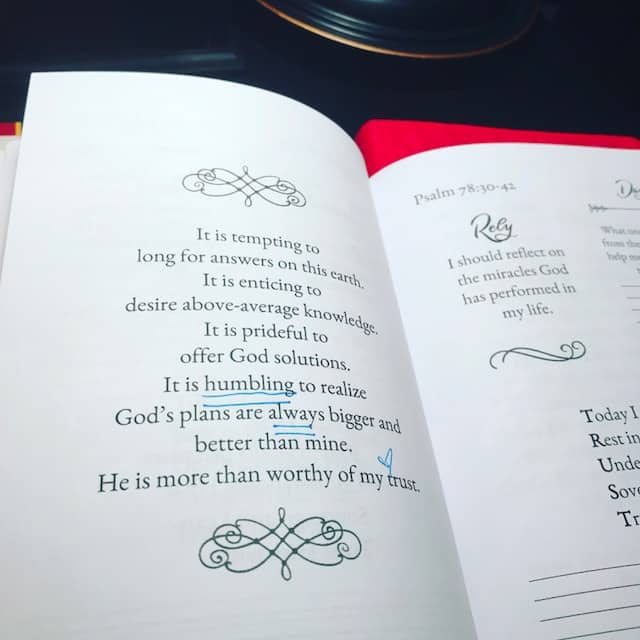 It is tempting to
long for answers on this earth.
It is enticing to
desire above-average knowledge.
It is prideful to
offer God solutions.
It is humbling to realize
God's plans are always bigger and
better than mine.
He is more than worthy of my trust.
Psalm 78:30-42
Rely
I should reflect on
the miracles God
has performed in
my life.
What
from
help
Today I
Rest in